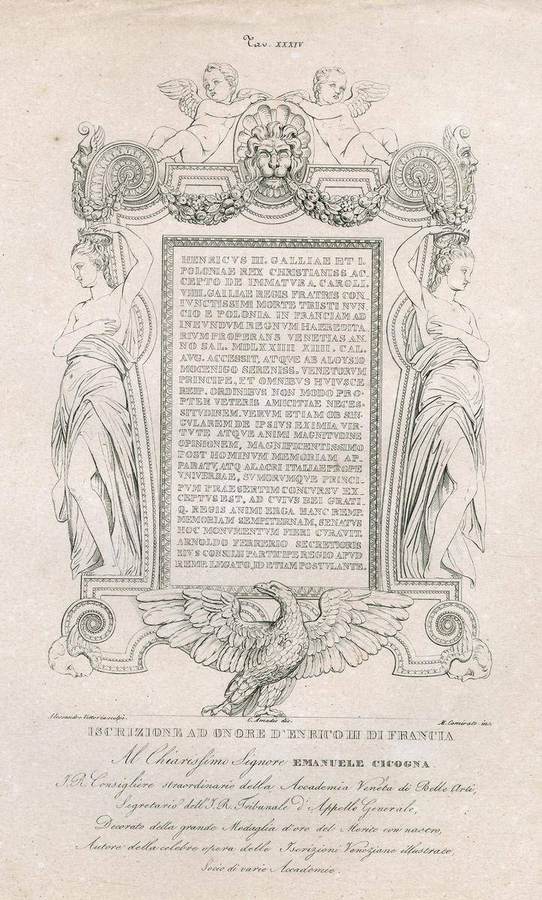 Tav. XXXIV
HENRICVS III. GALLIAE ET I.
POLONIAE REX CHRISTIANISS AC,
CEPTO DE IMMATVRA CAROLI.
VIIII. GALLIAE REGIS FRATRIS CON,
IVNCTISSIMI MORTE TRISTI NVN,
CIO E POLONIA IN FRANCIAM AD
INEVNDVM REGNVM HAEREDITA
RIVM PROPERANS VENETIAS AN,
NO SAL. MDLXXIIII XIIII. CAL.
AVG. ACCESSIT, ATQVE AB ALOYSIO
MOCENIGO SERENISS. VENETORVM
PRINCIPE, ET OMNIBVS HVIVSCE
REIP. ORDINIBVS NON MODO PRO,
PTER VETERIS AMICITIAE NECES,
SITVDINEM. VERVM ETIAM OB SIN,
GVLAREM DE IPSIVS EXIMIA VIR,
TVTE ATQVE ANIMI MAGNITVDINE
OPINIONEM, MAGNIFICENTISSIMO
POST HOMINVM MEMORIAM AP,
PARATV, ATQ ALACRI ITALIAE PROPE
VNIVERSAE, SVMORVMQVE PRINCI,
PVM PRAESERTIM CONCVRSV EX,
CEPTVS EST, AD CVIVS REI GRATI,
Q. REGIS ANIMI ERGA HANC REMP.
MEMORIAM SEMPITERNAM, SENATVS
HOC MONVMENTVM FIERI CVRAVIT,
ARNOLDO FERRERIO SECRETIORIS
EIVS CONSILII PARTICIPE REGIO APVD
REMP. LEGATO, ID ETIAM POSTVLANTE.
Alessandro Vittoria sculpì. C. Amadei dis. M. Comirato inc.
ISCRIZIONE AD ONORE D'ENRICO III DI FRANCIA
Al Chiarissimo Signore EMANUELE CICOGNA.
I. R. Consigliere straordinario della Accademia Veneta di Belle Arti,
Segretario dell'I. R. Tribunale d'Appello Generale,
Decorato della grande Medaglia d'oro del Merito con nastro,
Autore della celebre opera delle Iscrizioni Veneziane illustrate,
Socio di varie Accademie.